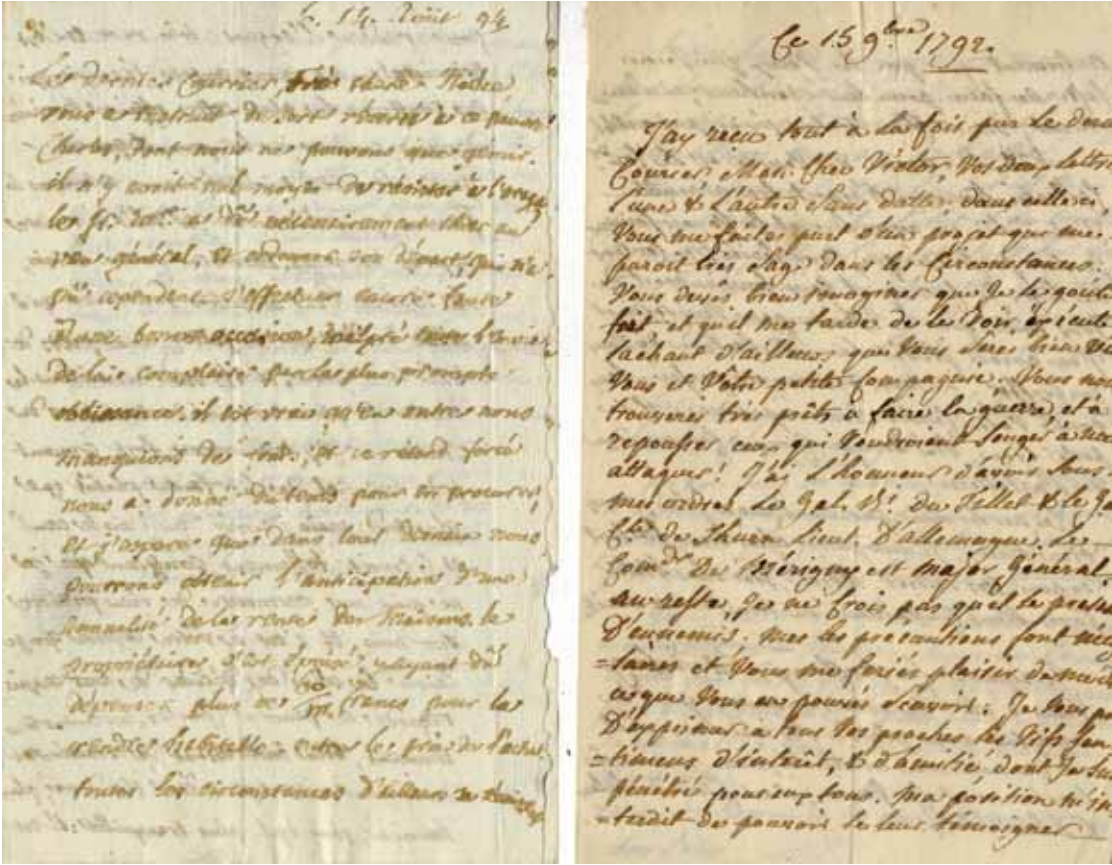 14. Août 94
Les dernier Courrier, très chere Nièce
vous a instruit du sort réservé à ce pauvre
Charles, dont nous ne pouvons que gémir.
il n'y avoit nul moyen de résister à l'orage
général, et ordonner son départ, qui n'a
pû cependant s'effectuer encore faute
D'une bonne occasion, malgré toute l'envie
De la plus prompte
obéissance. il est vrai qu'en outre nous
manquions de et ce retard forcé
nous a donné du tems pour en procurer,
et j'espere que dans tout Demain nous
pourrons obtenir l'anticipation d'une
annualité de la rente des Maisons. le
propriétaire s'est ayant dû
dépenser plus de francs pour la
rendre habitable outre le prix de l'achat
toutes les circonstances d'ailleurs
Ce 15 9bre 1792.
J'ay reçu tout à la fois par le
Courier Mon Cher Victor, Vos deux lettres
l'une & l'autre sans datte, dans celle ci,
Vous me faites part d'un projet qui me
paroit très sage dans les Circonstances.
Vous devés bien imaginer que Je le goute
fort et qu'il me tarde de le Voir exécuté
sachant d'ailleurs que Vous serés bien
Vous et Vôtre petite Compagnie. Vous nous
trouverez très prêts à faire la guerre, et à
repousser ceux qui Voudroient songer à nous
attaquer! J'ai l'honneur d'avoir sous
mes ordres le Gal. Bn. Du Tillet & le
Cte. de Thurn lieut. D'allemagne. Le
Comdr De Bérigny est Major Général.
au reste, Je ne Crois pas qu'il se
D'ennemis. Mes les precautions sont
=saires et Vous me ferés plaisir de
ce que Vous en pourrés scavoir. Je Vous
D'exprimer à tous Vos proches les Vifs sen
=timens d'intérêt, & d'amitié, dont Je suis
pénétré pour eux tous. Ma position
=terdit de pouvoir le leur témoigner